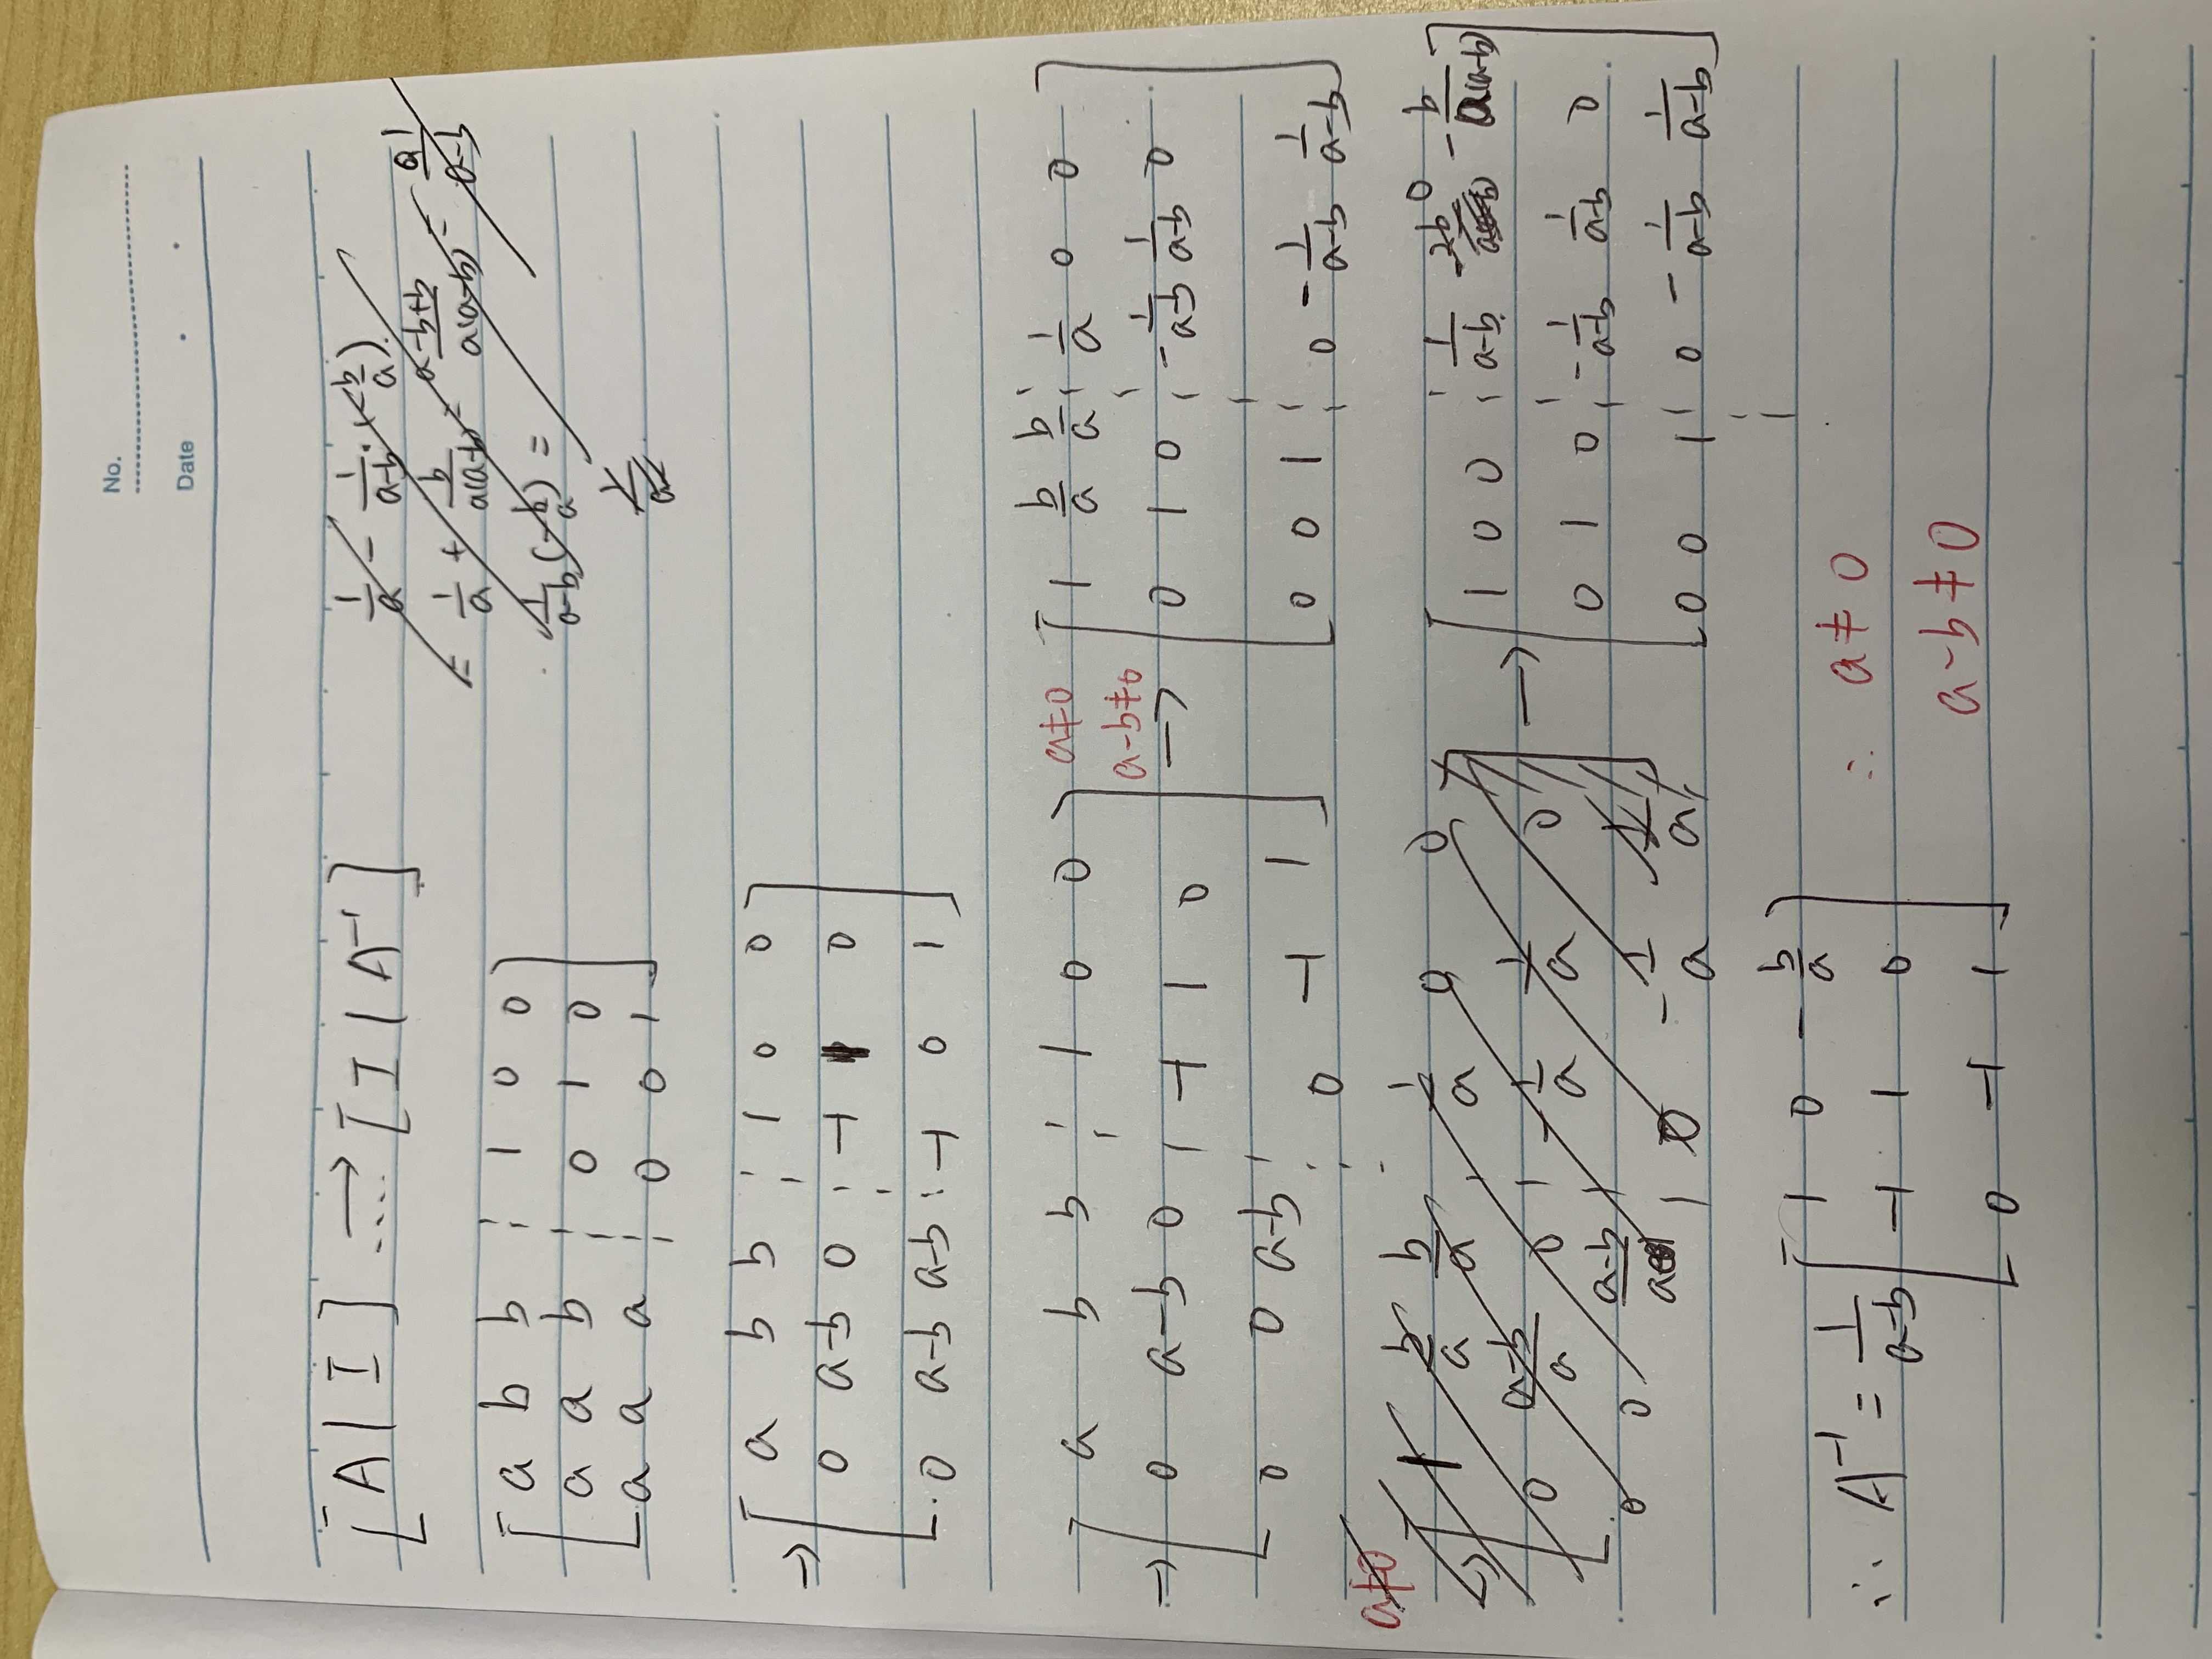 No.
Date
[A | I] → .... [I | A⁻¹]
1/a − 1/(a−b) · (−b/a).
= 1/a + b/(a(a−b)) = (a−b+b)/(a(a−b)) = 1/(a−b)
1/(a−b) (−b/a) =
[ a b b ¦ 1 0 0
a a b ¦ 0 1 0
a a a ¦ 0 0 1 ]
→ [ a b b ¦ 1 0 0
0 a−b 0 ¦ −1 1 0
0 a−b a−b ¦ −1 0 1 ]
→ [ a b b ¦ 1 0 0
0 a−b 0 ¦ −1 1 0
0 0 a−b ¦ 0 −1 1 ]
a≠0
a−b≠0
→ [ 1 b/a b/a ¦ 1/a 0 0
0 1 0 ¦ −1/(a−b) 1/(a−b) 0
0 0 1 ¦ 0 −1/(a−b) 1/(a−b) ]
a≠0
→ [ 1 b/a b/a ¦ 1/a 0 0
0 (a−b)/a 0 ¦ −1/a 1/a 0
0 0 (a−b)/a ¦ 0 −1/a 1/a ]
→ [ 1 0 0 ¦ 1/(a−b) 0 −b/(a(a−b))
0 1 0 ¦ −1/(a−b) 1/(a−b) 0
0 0 1 ¦ 0 −1/(a−b) 1/(a−b) ]
∴ A⁻¹ = 1/(a−b) [ 1 0 −b/a
−1 1 0
0 −1 1 ]
∴ a≠0
a−b≠0